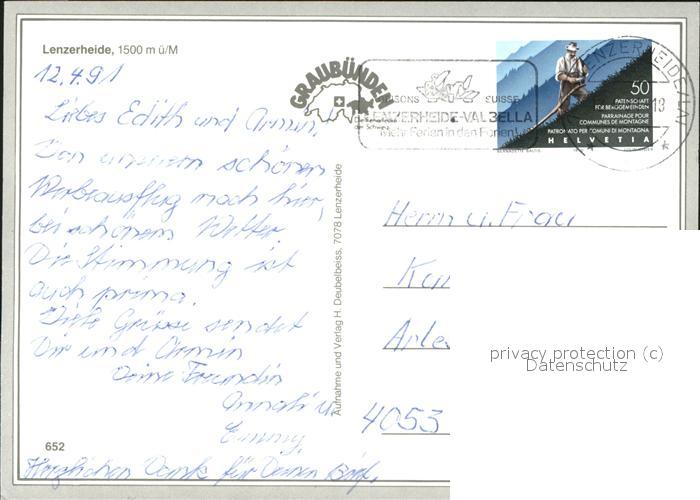 Lenzerheide, 1500 m ü/M
12.4.91
Liebes Edith und Armin,
Von unserem schönen
nach hier,
bei schönem Wetter.
Die Stimmung ist
auch prima.
Viele Grüsse sendet
Dir und Armin
Deine Freundin
Annali u.
Emmy.
Herzlichen Dank für Deinen Brief.
652
Aufnahme und Verlag H. Deubelbeiss, 7078 Lenzerheide
GRAUBÜNDEN
Die Ferienecke
der Schweiz
GRISONS SUISSE
LENZERHEIDE-VALBELLA
mehr Ferien in den Ferien
LENZERHEIDE/LAI
50
PATENSCHAFT
FÜR BERGGEMEINDEN
PARRAINAGE POUR
COMMUNES DE MONTAGNE
PATRONATO PER COMUNI DI MONTAGNA
HELVETIA
Herrn u. Frau
4053
privacy protection (c)
Datenschutz